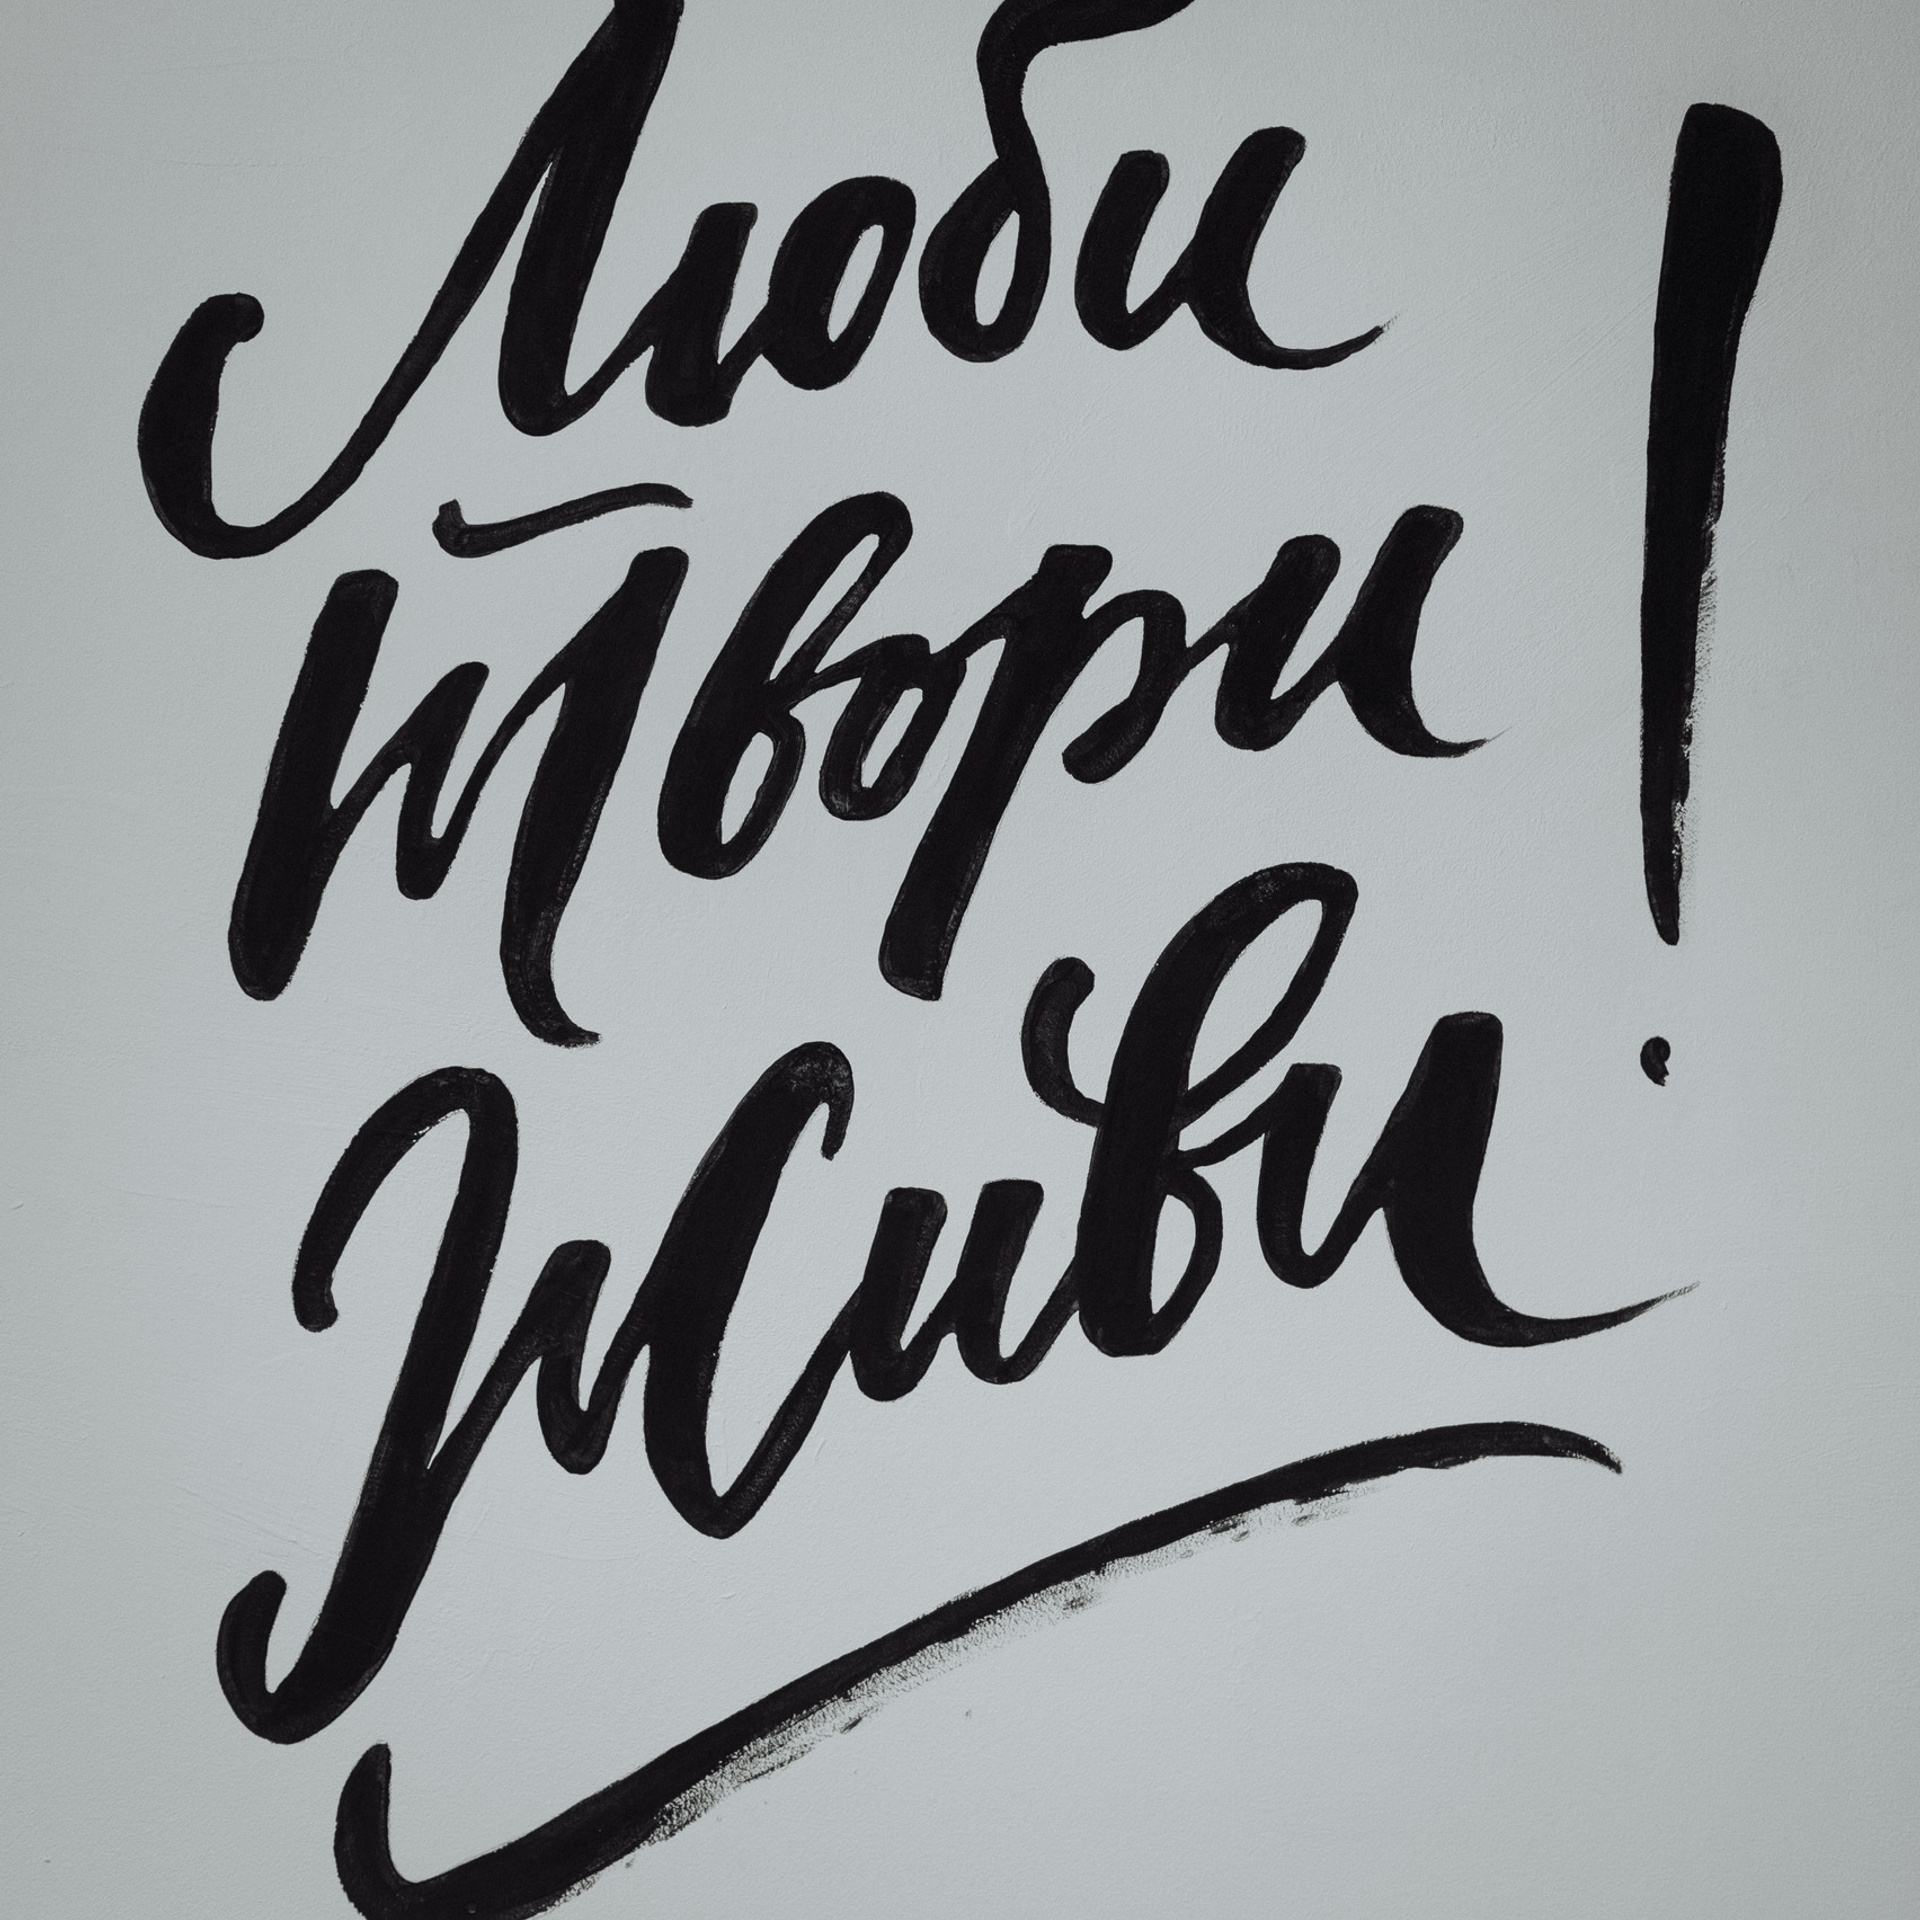 Люби
твори
Живи!